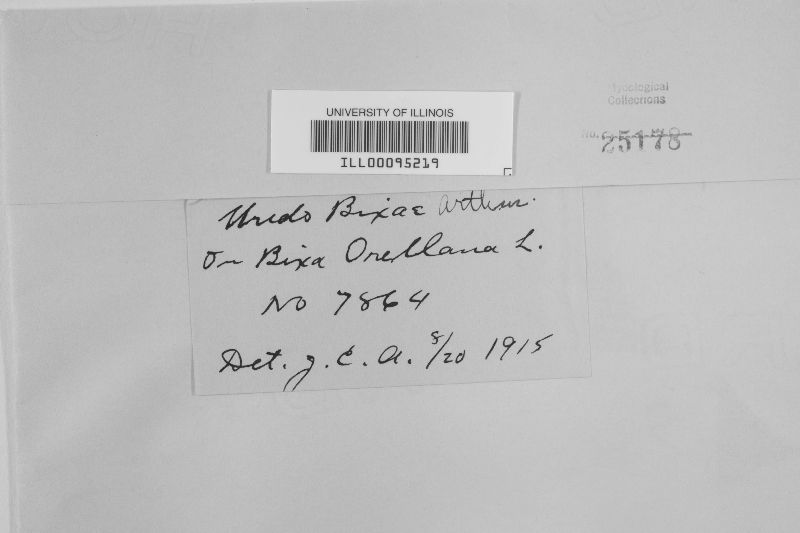 Mycological
Collections
No. 25178
UNIVERSITY OF ILLINOIS
ILL00095219
Uredo Bixae Arthur.
On Bixa Orellana L.
No 7864
Det. J. C. A. 8/20 1915